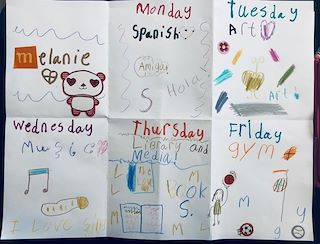 melanie
Monday
Spanish
Amigas
S
Hola
Tuesday
Art
Art
Wednesday
Music
I LOVE
Thursday
Library and
Media!
L
M
L
M
Books.
L
M
Friday
gym
M
y
g